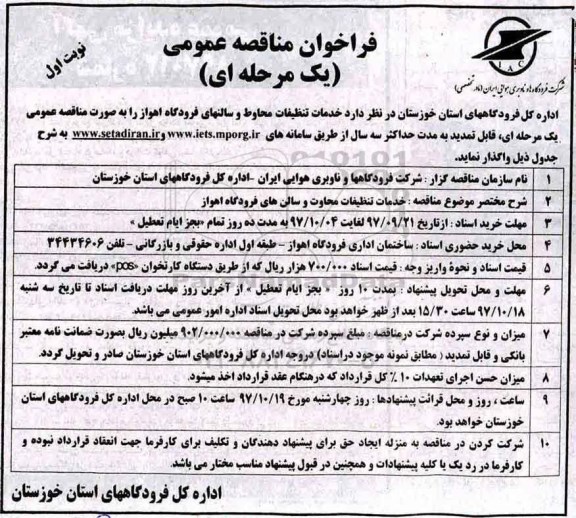 فراخوان مناقصه عمومی
(یک مرحله ای)
نوبت اول
IAC
شرکت فرودگاهها و ناوبری هوایی ایران (مادر تخصصی)
اداره کل فرودگاههای استان خوزستان در نظر دارد خدمات تنظیفات محاوط و سالنهای فرودگاه اهواز را به صورت مناقصه عمومی
یک مرحله ای، قابل تمدید به مدت حداکثر سه سال از طریق سامانه های www.iets.mporg.ir و www.setadiran.ir به شرح
جدول ذیل واگذار نماید.
۱ نام سازمان مناقصه گزار : شرکت فرودگاهها و ناوبری هوایی ایران -اداره کل فرودگاههای استان خوزستان
۲ شرح مختصر موضوع مناقصه : خدمات تنظیفات محاوت و سالن های فرودگاه اهواز
۳ مهلت خرید اسناد : ازتاریخ ۹۷/۰۹/۲۱ لغایت ۹۷/۱۰/۰۴ به مدت ده روز تمام «بجز ایام تعطیل »
۴ محل خرید حضوری اسناد : ساختمان اداری فرودگاه اهواز - طبقه اول اداره حقوقی و بازرگانی - تلفن ۳۴۴۳۴۶۰۶
۵ قیمت اسناد و نحوۀ واریز وجه : قیمت اسناد ۷۰۰/۰۰۰ هزار ریال که از طریق دستگاه کارتخوان «pos» دریافت می گردد.
۶ مهلت و محل تحویل پیشنهاد : بمدت ۱۰ روز « بجز ایام تعطیل » از آخرین روز مهلت دریافت اسناد تا تاریخ سه شنبه
۹۷/۱۰/۱۸ ساعت ۱۵/۳۰ بعد از ظهر خواهد بود محل تحویل اسناد اداره امور عمومی می باشد.
۷ میزان و نوع سپرده شرکت درمناقصه : مبلغ سپرده شرکت در مناقصه ۹۰۲/۰۰۰/۰۰۰ میلیون ریال بصورت ضمانت نامه معتبر
بانکی و قابل تمدید ( مطابق نمونه موجود دراسناد) دروجه اداره کل فرودگاههای استان خوزستان صادر و تحویل گردد.
۸ میزان حسن اجرای تعهدات ۱۰ ٪ کل قرارداد که درهنگام عقد قرارداد اخذ میشود.
۹ ساعت ، روز و محل قرائت پیشنهادها : روز چهارشنبه مورخ ۹۷/۱۰/۱۹ ساعت ۱۰ صبح در محل اداره کل فرودگاههای استان
خوزستان خواهد بود.
۱۰ شرکت کردن در مناقصه به منزله ایجاد حق برای پیشنهاد دهندگان و تکلیف برای کارفرما جهت انعقاد قرارداد نبوده و
کارفرما در رد یک یا کلیه پیشنهادات و همچنین در قبول پیشنهاد مناسب مختار می باشد.
اداره کل فرودگاههای استان خوزستان